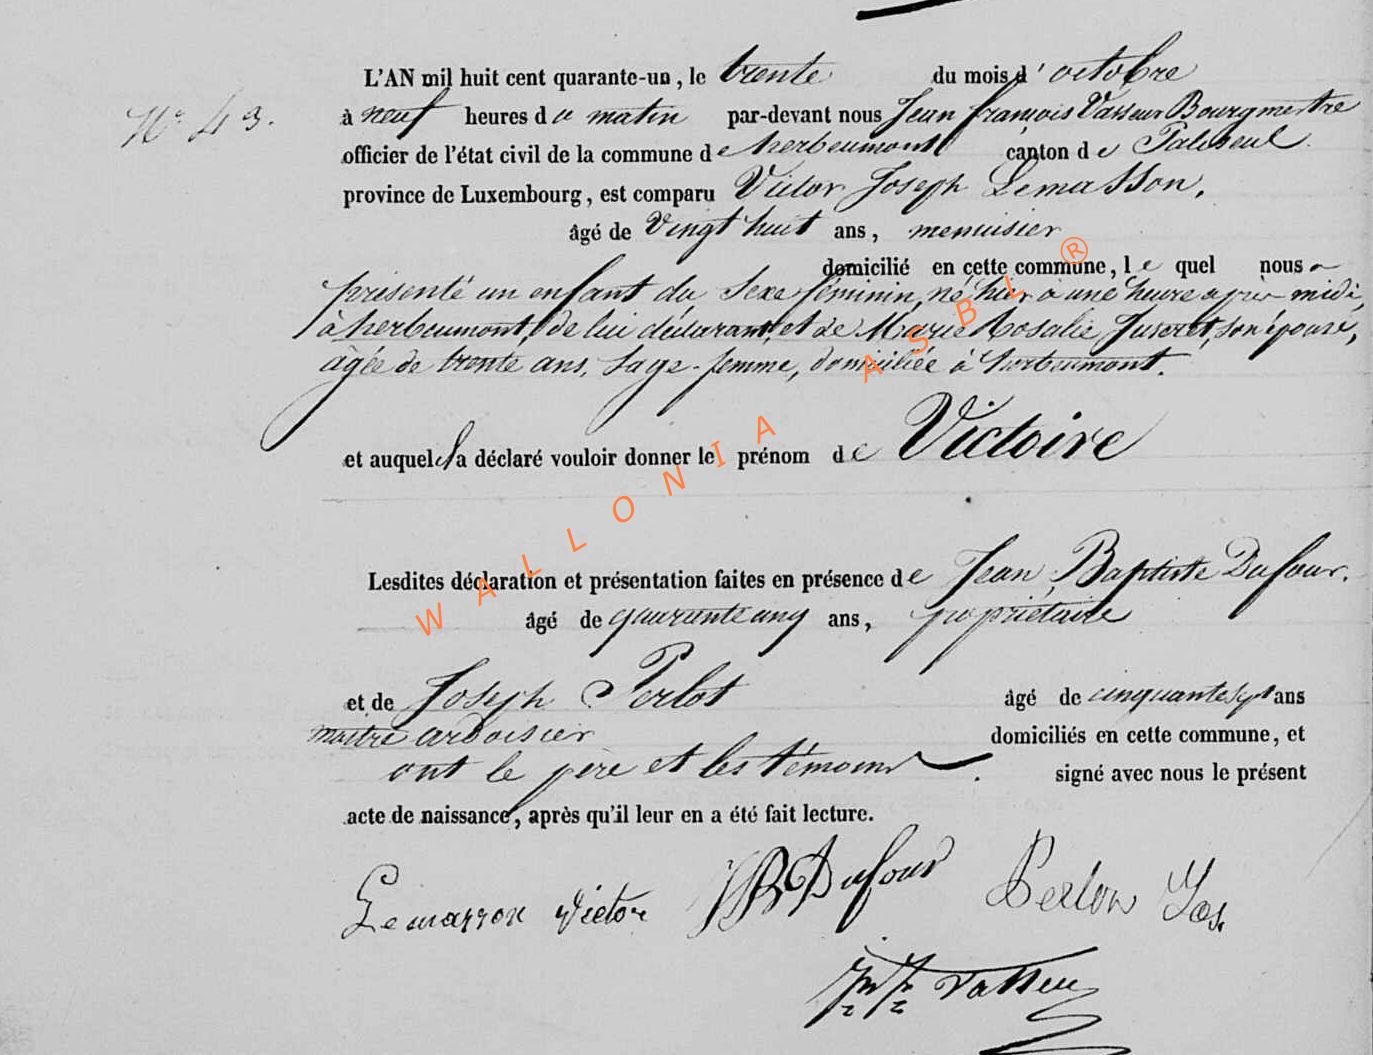 L'AN mil huit cent quarante-un, le trente du mois d'octobre
N° 43.
à neuf heures du matin par-devant nous Jean françois Vasseur Bourgmestre
officier de l'état civil de la commune de herbeumont canton de Paliseul.
province de Luxembourg, est comparu Victor Joseph Lemasson,
âgé de Vingt huit ans, menuisier
domicilié en cette commune, le quel nous a
présenté un enfant du Sexe féminin, né hier à une heure après midi,
à herbeumont, de lui déclarant, et de Marie Rosalie Juseret, son épouse,
âgée de trente ans, Sage-femme, domiciliée à herbeumont.
et auquel il a déclaré vouloir donner le prénom de Victoire
Lesdites déclaration et présentation faites en présence de Jean Baptiste Dufour.
âgé de quarante cinq ans, propriétaire
et de Joseph Perlot âgé de cinquante sept ans
maitre ardoisier domiciliés en cette commune, et
ont le père et les témoins signé avec nous le présent
acte de naissance, après qu'il leur en a été fait lecture.
Lemasson Victor JB Dufour Perlot Jos.
Vasseur
WALLONIA ASBL ®